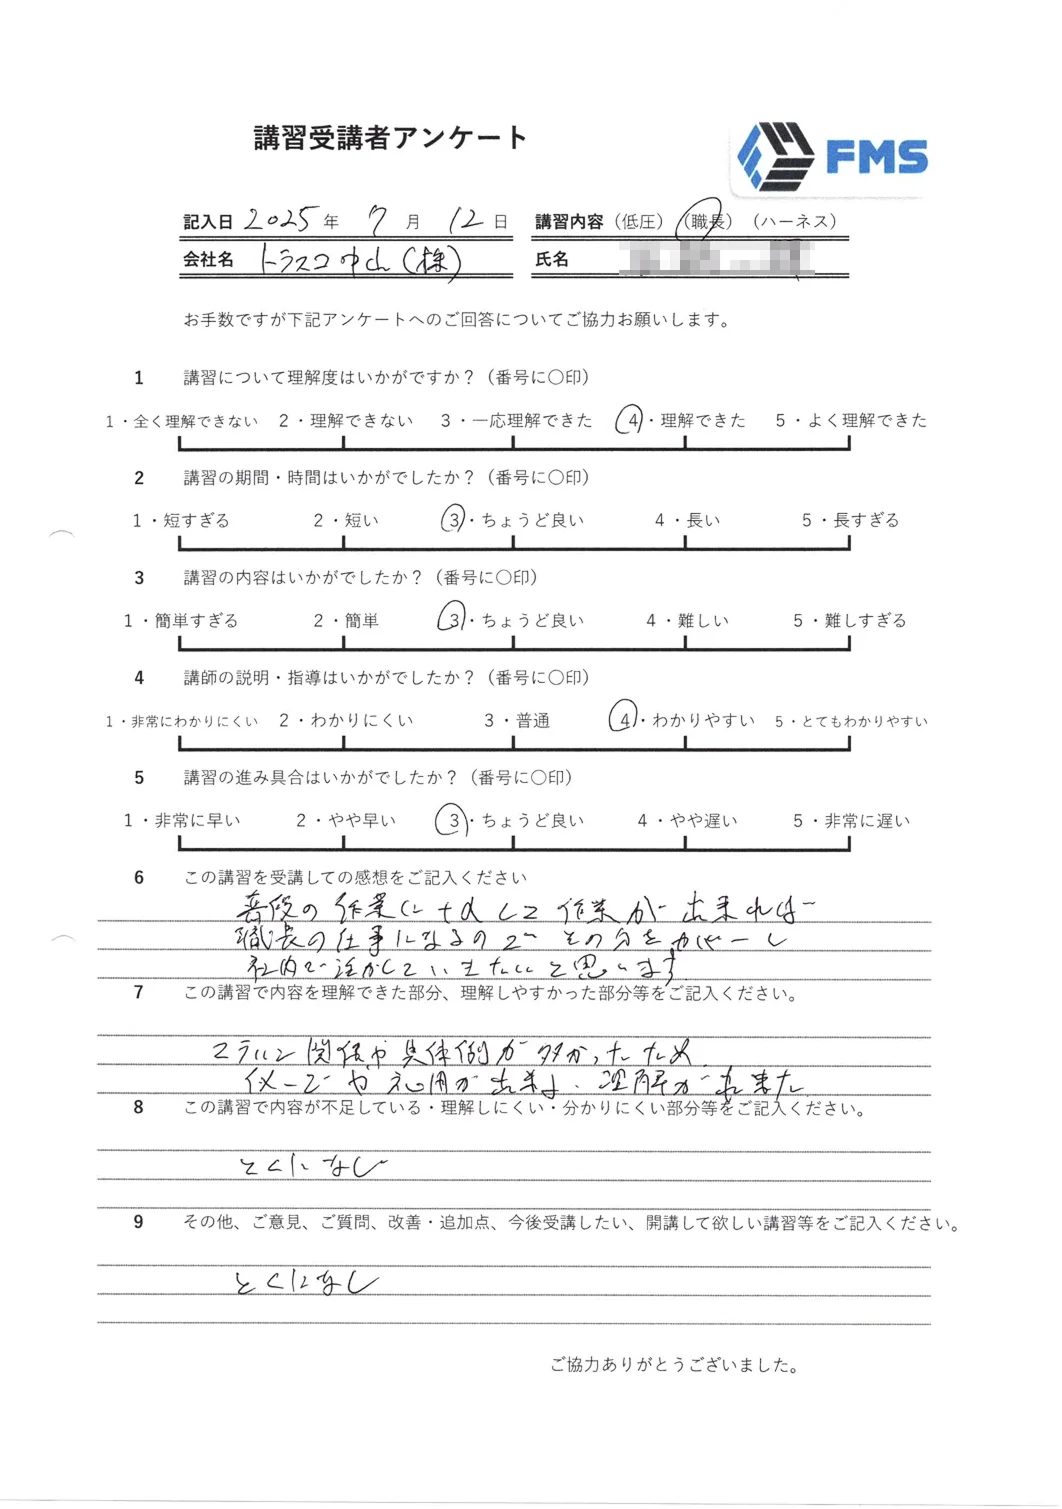 講習受講者アンケート
FMS
記入日 2025 年 7 月 12 日 講習内容（低圧）（職長）（ハーネス）
会社名 トラスコ中山（様） 氏名
お手数ですが下記アンケートへのご回答についてご協力お願いします。
1 講習について理解度はいかがですか？（番号に〇印）
1・全く理解できない 2・理解できない 3・一応理解できた 4・理解できた 5・よく理解できた
2 講習の期間・時間はいかがでしたか？（番号に〇印）
1・短すぎる 2・短い 3・ちょうど良い 4・長い 5・長すぎる
3 講習の内容はいかがでしたか？（番号に〇印）
1・簡単すぎる 2・簡単 3・ちょうど良い 4・難しい 5・難しすぎる
4 講師の説明・指導はいかがでしたか？（番号に〇印）
1・非常にわかりにくい 2・わかりにくい 3・普通 4・わかりやすい 5・とてもわかりやすい
5 講習の進み具合はいかがでしたか？（番号に〇印）
1・非常に早い 2・やや早い 3・ちょうど良い 4・やや遅い 5・非常に遅い
6 この講習を受講しての感想をご記入ください
普段の作業に＋αして作業が出来れば
職長の仕事になるので その分をカバーし
社内で活かしていきたいと思います
7 この講習で内容を理解できた部分、理解しやすかった部分等をご記入ください。
関係や具体例が多かったため
イメージや応用が出来 理解が出来た
8 この講習で内容が不足している・理解しにくい・分かりにくい部分等をご記入ください。
とくになし
9 その他、ご意見、ご質問、改善・追加点、今後受講したい、開講して欲しい講習等をご記入ください。
とくになし
ご協力ありがとうございました。